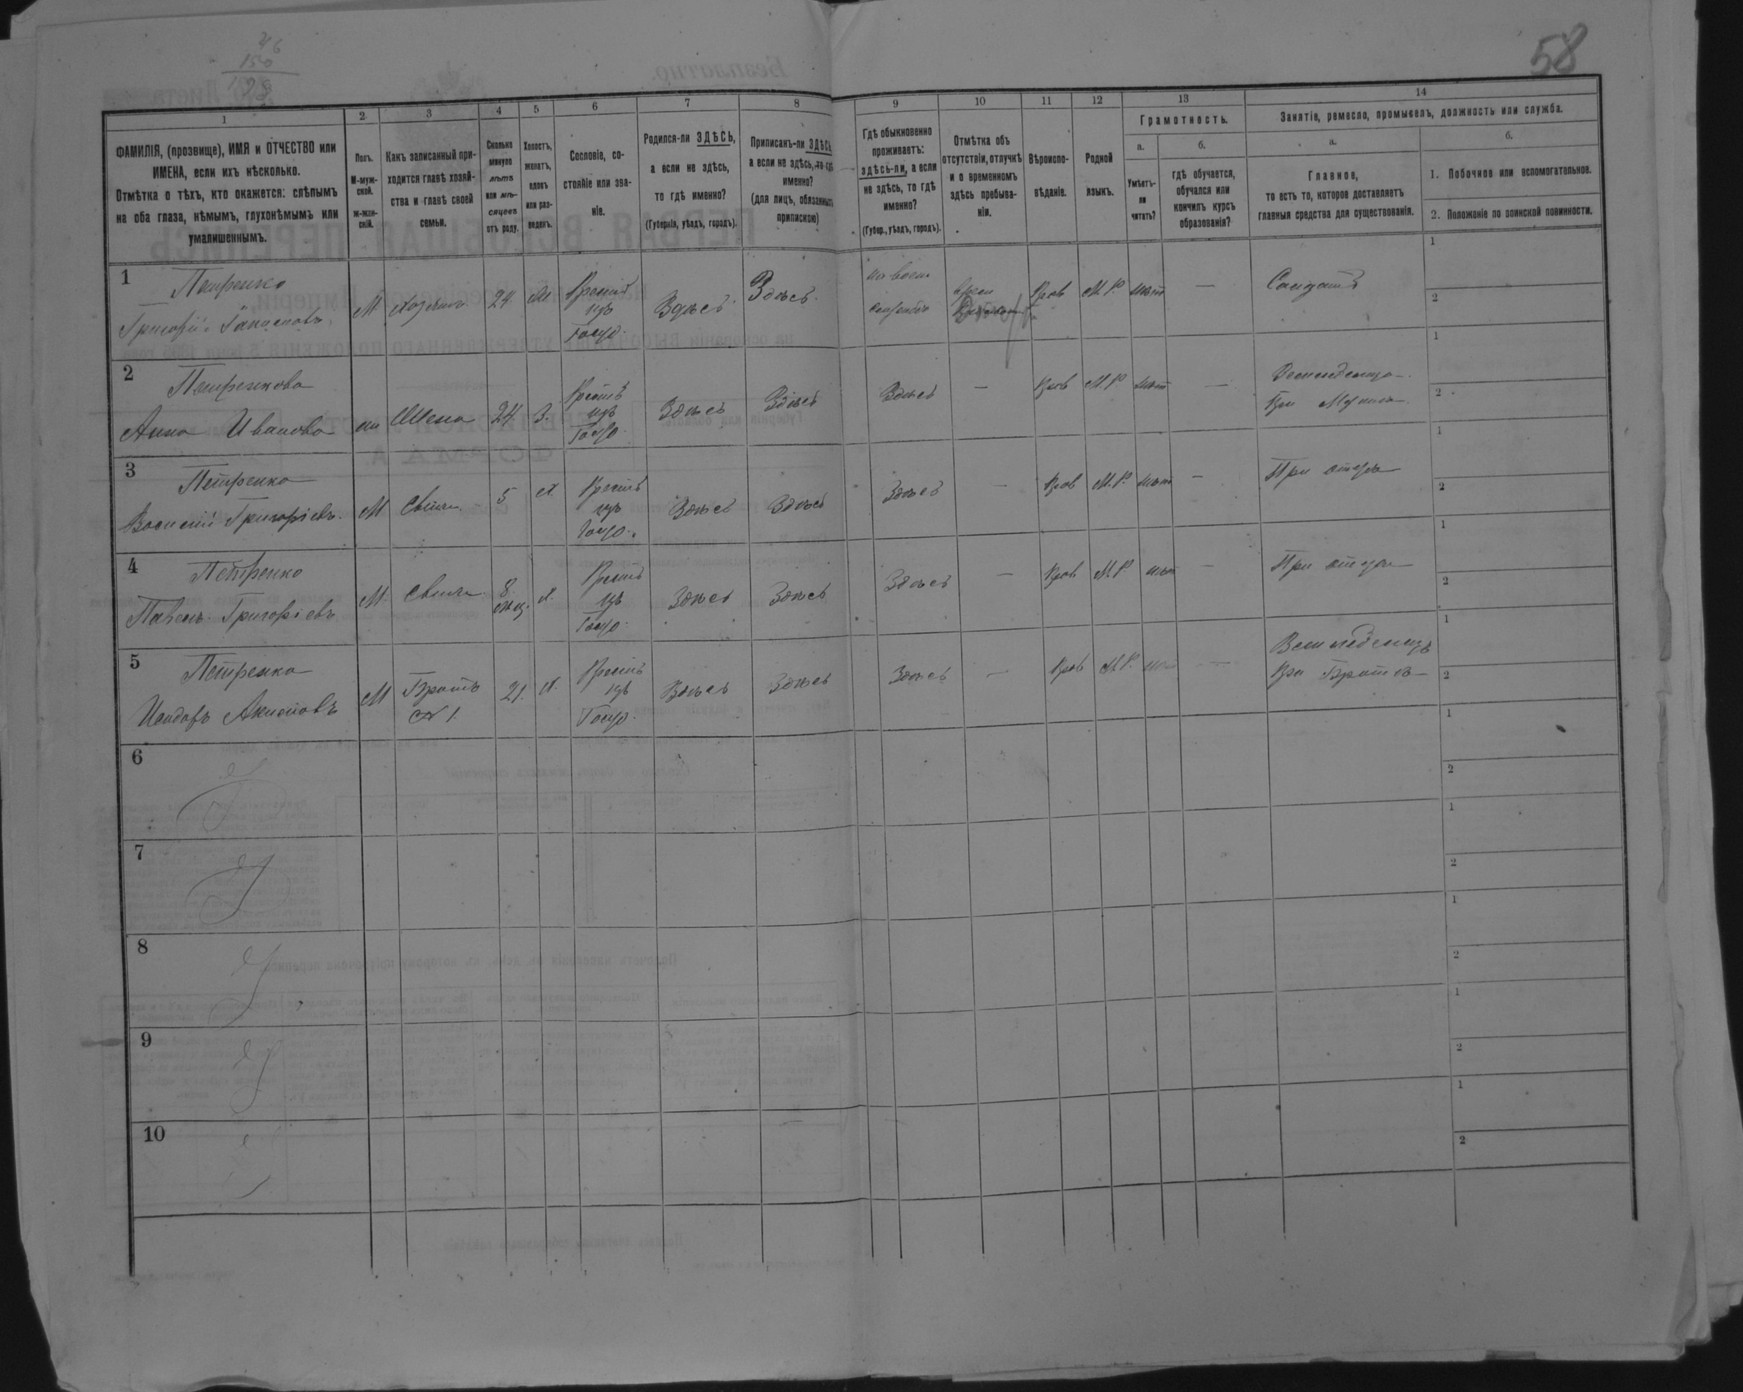 46
150
58
1
2
3
4
5
6
7
8
9
10
11
12
13
14
ФАМИЛІЯ, (прозвище), ИМЯ и ОТЧЕСТВО или
ИМЕНА, если ихъ нѣсколько.
Отмѣтка о тѣхъ, кто окажется: слѣпымъ
на оба глаза, нѣмымъ, глухонѣмымъ или
умалишеннымъ.
Полъ.
М-муж-
ской.
ж-жен-
скій.
Какъ записанный при-
ходится главѣ хозяй-
ства и главѣ своей
семьи.
Сколько
минуло
лѣтъ
или мѣ-
сяцевъ
отъ роду.
Холостъ,
женатъ,
вдовъ
или раз-
веденъ.
Сословіе, со-
стояніе или зва-
ніе.
Родился-ли ЗДѢСЬ,
а если не здѣсь,
то гдѣ именно?
(Губернія, уѣздъ, городъ).
Приписанъ-ли ЗДѢСЬ,
а если не здѣсь, то гдѣ
именно?
(для лицъ, обязанныхъ
припискою)
Гдѣ обыкновенно
проживаетъ:
здѣсь-ли, а если
не здѣсь, то гдѣ
именно?
(Губер., уѣздъ, городъ).
Отмѣтка объ
отсутствіи, отлучкѣ
и о временномъ
здѣсь пребыва-
ніи.
Вѣроиспо-
вѣданіе.
Родной
языкъ.
Грамотность.
а.
Умѣетъ-
ли
читать?
б.
гдѣ обучается,
обучался или
кончилъ курсъ
образованія?
Занятіе, ремесло, промыселъ, должность или служба.
а.
Главное,
то есть то, которое доставляетъ
главныя средства для существованія.
б.
1. Побочное или вспомогательное.
2. Положеніе по воинской повинности.
1
Петренко
Григорій
М
Хозяинъ
24
Крест.
изъ
Госуд.
Здѣсь
Здѣсь
на воен.
службѣ
Прав
М.Р.
нѣт
—
Солдатъ
1
2
2
Петренкова
Анна Иванова
Жена
24
З.
Крест.
изъ
Госуд.
Здѣсь
Здѣсь
Здѣсь
—
Прав
М.Р.
нѣт
—
При мужѣ
1
2
3
Петренко
Василій Григоріевъ
М
Сынъ
5
Х
Крест.
изъ
Госуд.
Здѣсь
Здѣсь
Здѣсь
—
Прав
М.Р.
нѣт
—
При отцѣ
1
2
4
Петренко
Павелъ Григоріевъ
М.
Сынъ
8
мѣс.
Х.
Крест.
изъ
Госуд.
Здѣсь
Здѣсь
Здѣсь
—
Прав
М.Р.
нѣт
—
При отцѣ
1
2
5
Петренко
Исидоръ
М
Братъ
№ 1.
21.
Х.
Крест.
изъ
Госуд.
Здѣсь
Здѣсь
Здѣсь
—
Прав
М.Р.
нѣт
—
Земледѣлецъ
При братѣ
1
2
6
1
2
7
1
2
8
1
2
9
1
2
10
1
2